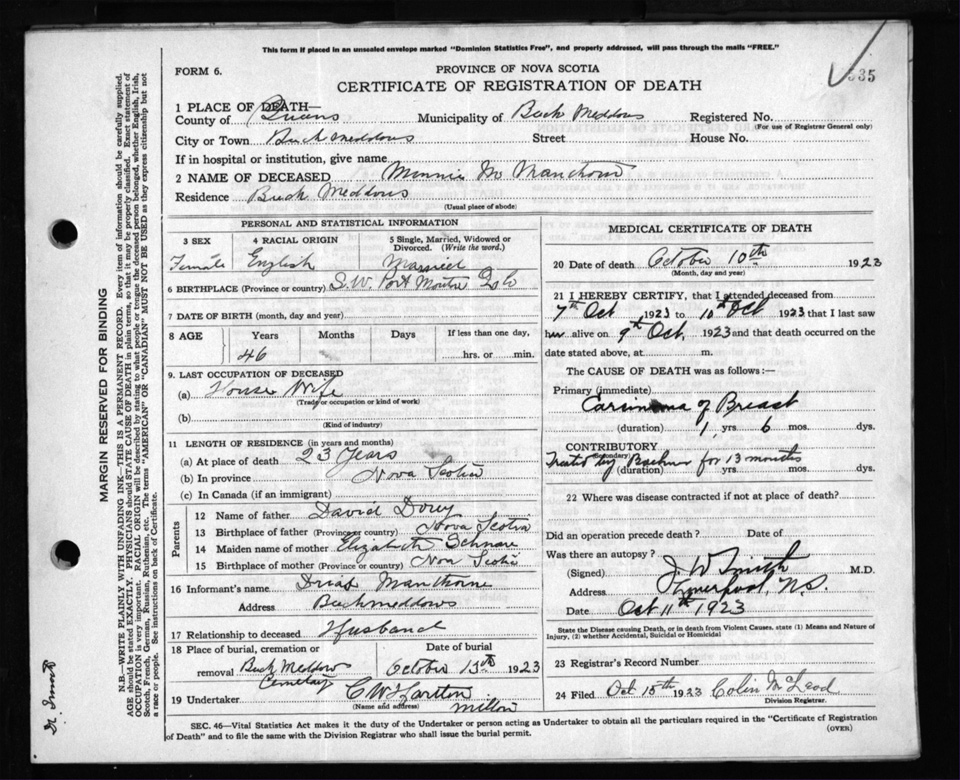 This form if placed in an unsealed envelope marked "Dominion Statistics Free", and properly addressed, will pass through the mails "FREE."
535
FORM 6.
PROVINCE OF NOVA SCOTIA
CERTIFICATE OF REGISTRATION OF DEATH
1 PLACE OF DEATH—
County of Queens Municipality of Buck Meddows Registered No.
(For use of Registrar General only)
City or Town Buck Meddows Street House No.
If in hospital or institution, give name
2 NAME OF DECEASED Minnie M Manthorn
Residence Buck Meddows
(Usual place of abode)
PERSONAL AND STATISTICAL INFORMATION
3 SEX 4 RACIAL ORIGIN 5 Single, Married, Widowed or Divorced. (Write the word.)
Female English Married
6 BIRTHPLACE (Province or country) S.W. Port Mouton Q Co
7 DATE OF BIRTH (month, day and year)
8 AGE Years Months Days If less than one day,
46 hrs. or min.
9. LAST OCCUPATION OF DECEASED
(a) House Wife
(Trade or occupation or kind of work)
(b)
(Kind of industry)
11 LENGTH OF RESIDENCE (in years and months)
(a) At place of death 23 Years
(b) In province Nova Scotia
(c) In Canada (if an immigrant)
Parents
12 Name of father David Dowy
13 Birthplace of father (Province or country) Nova Scotia
14 Maiden name of mother Elizabeth Schnare
15 Birthplace of mother (Province or Country) Nova Scotia
16 Informant's name Manthorne
Address Buckmeddows
17 Relationship to deceased Husband
18 Place of burial, cremation or removal Date of burial
Buck Meddow Cemetary October 13th 1923
19 Undertaker C W
(Name and address) Milton
MEDICAL CERTIFICATE OF DEATH
20 Date of death October 10th 1923
(Month, day and year)
21 I HEREBY CERTIFY, that I attended deceased from
7th Oct 1923 to 10th Oct 1923 that I last saw
her alive on 9th Oct, 1923 and that death occurred on the
date stated above, at m.
The CAUSE OF DEATH was as follows:—
Primary (immediate)
Carcinoma of Breast
(duration) 1, yrs 6 mos. dys.
CONTRIBUTORY
(Secondary)
Treated by for 13 months
(duration) yrs. mos. dys.
22 Where was disease contracted if not at place of death?
Did an operation precede death? Date of
Was there an autopsy?
(Signed) J W Smith M.D.
Address Liverpool, N.S.
Date Oct 11th 1923
State the Disease causing Death, or in death from Violent Causes, state (1) Means and Nature of Injury, (2) whether Accidental, Suicidal or Homicidal
23 Registrar's Record Number
24 Filed Oct 15th 1923 Colin McLeod
Division Registrar.
SEC. 46—Vital Statistics Act makes it the duty of the Undertaker or person acting as Undertaker to obtain all the particulars required in the "Certificate of Registration of Death" and to file the same with the Division Registrar who shall issue the burial permit.
(OVER)
MARGIN RESERVED FOR BINDING
N.B.—WRITE PLAINLY WITH UNFADING INK—THIS IS A PERMANENT RECORD. Every item of information should be carefully supplied.
AGE should be stated EXACTLY. PHYSICIANS should STATE CAUSE OF DEATH in plain terms, so that it may be properly classified. Exact statement of
OCCUPATION is very important. RACIAL ORIGIN will be described by stating to what people or tongue the deceased person belonged, whether English, Irish,
Scotch, French, German, Russian, Ruthenian, etc. The terms "AMERICAN" OR "CANADIAN" MUST NOT BE USED as they express citizenship but not
a race or people. See instructions on back of Certificate.